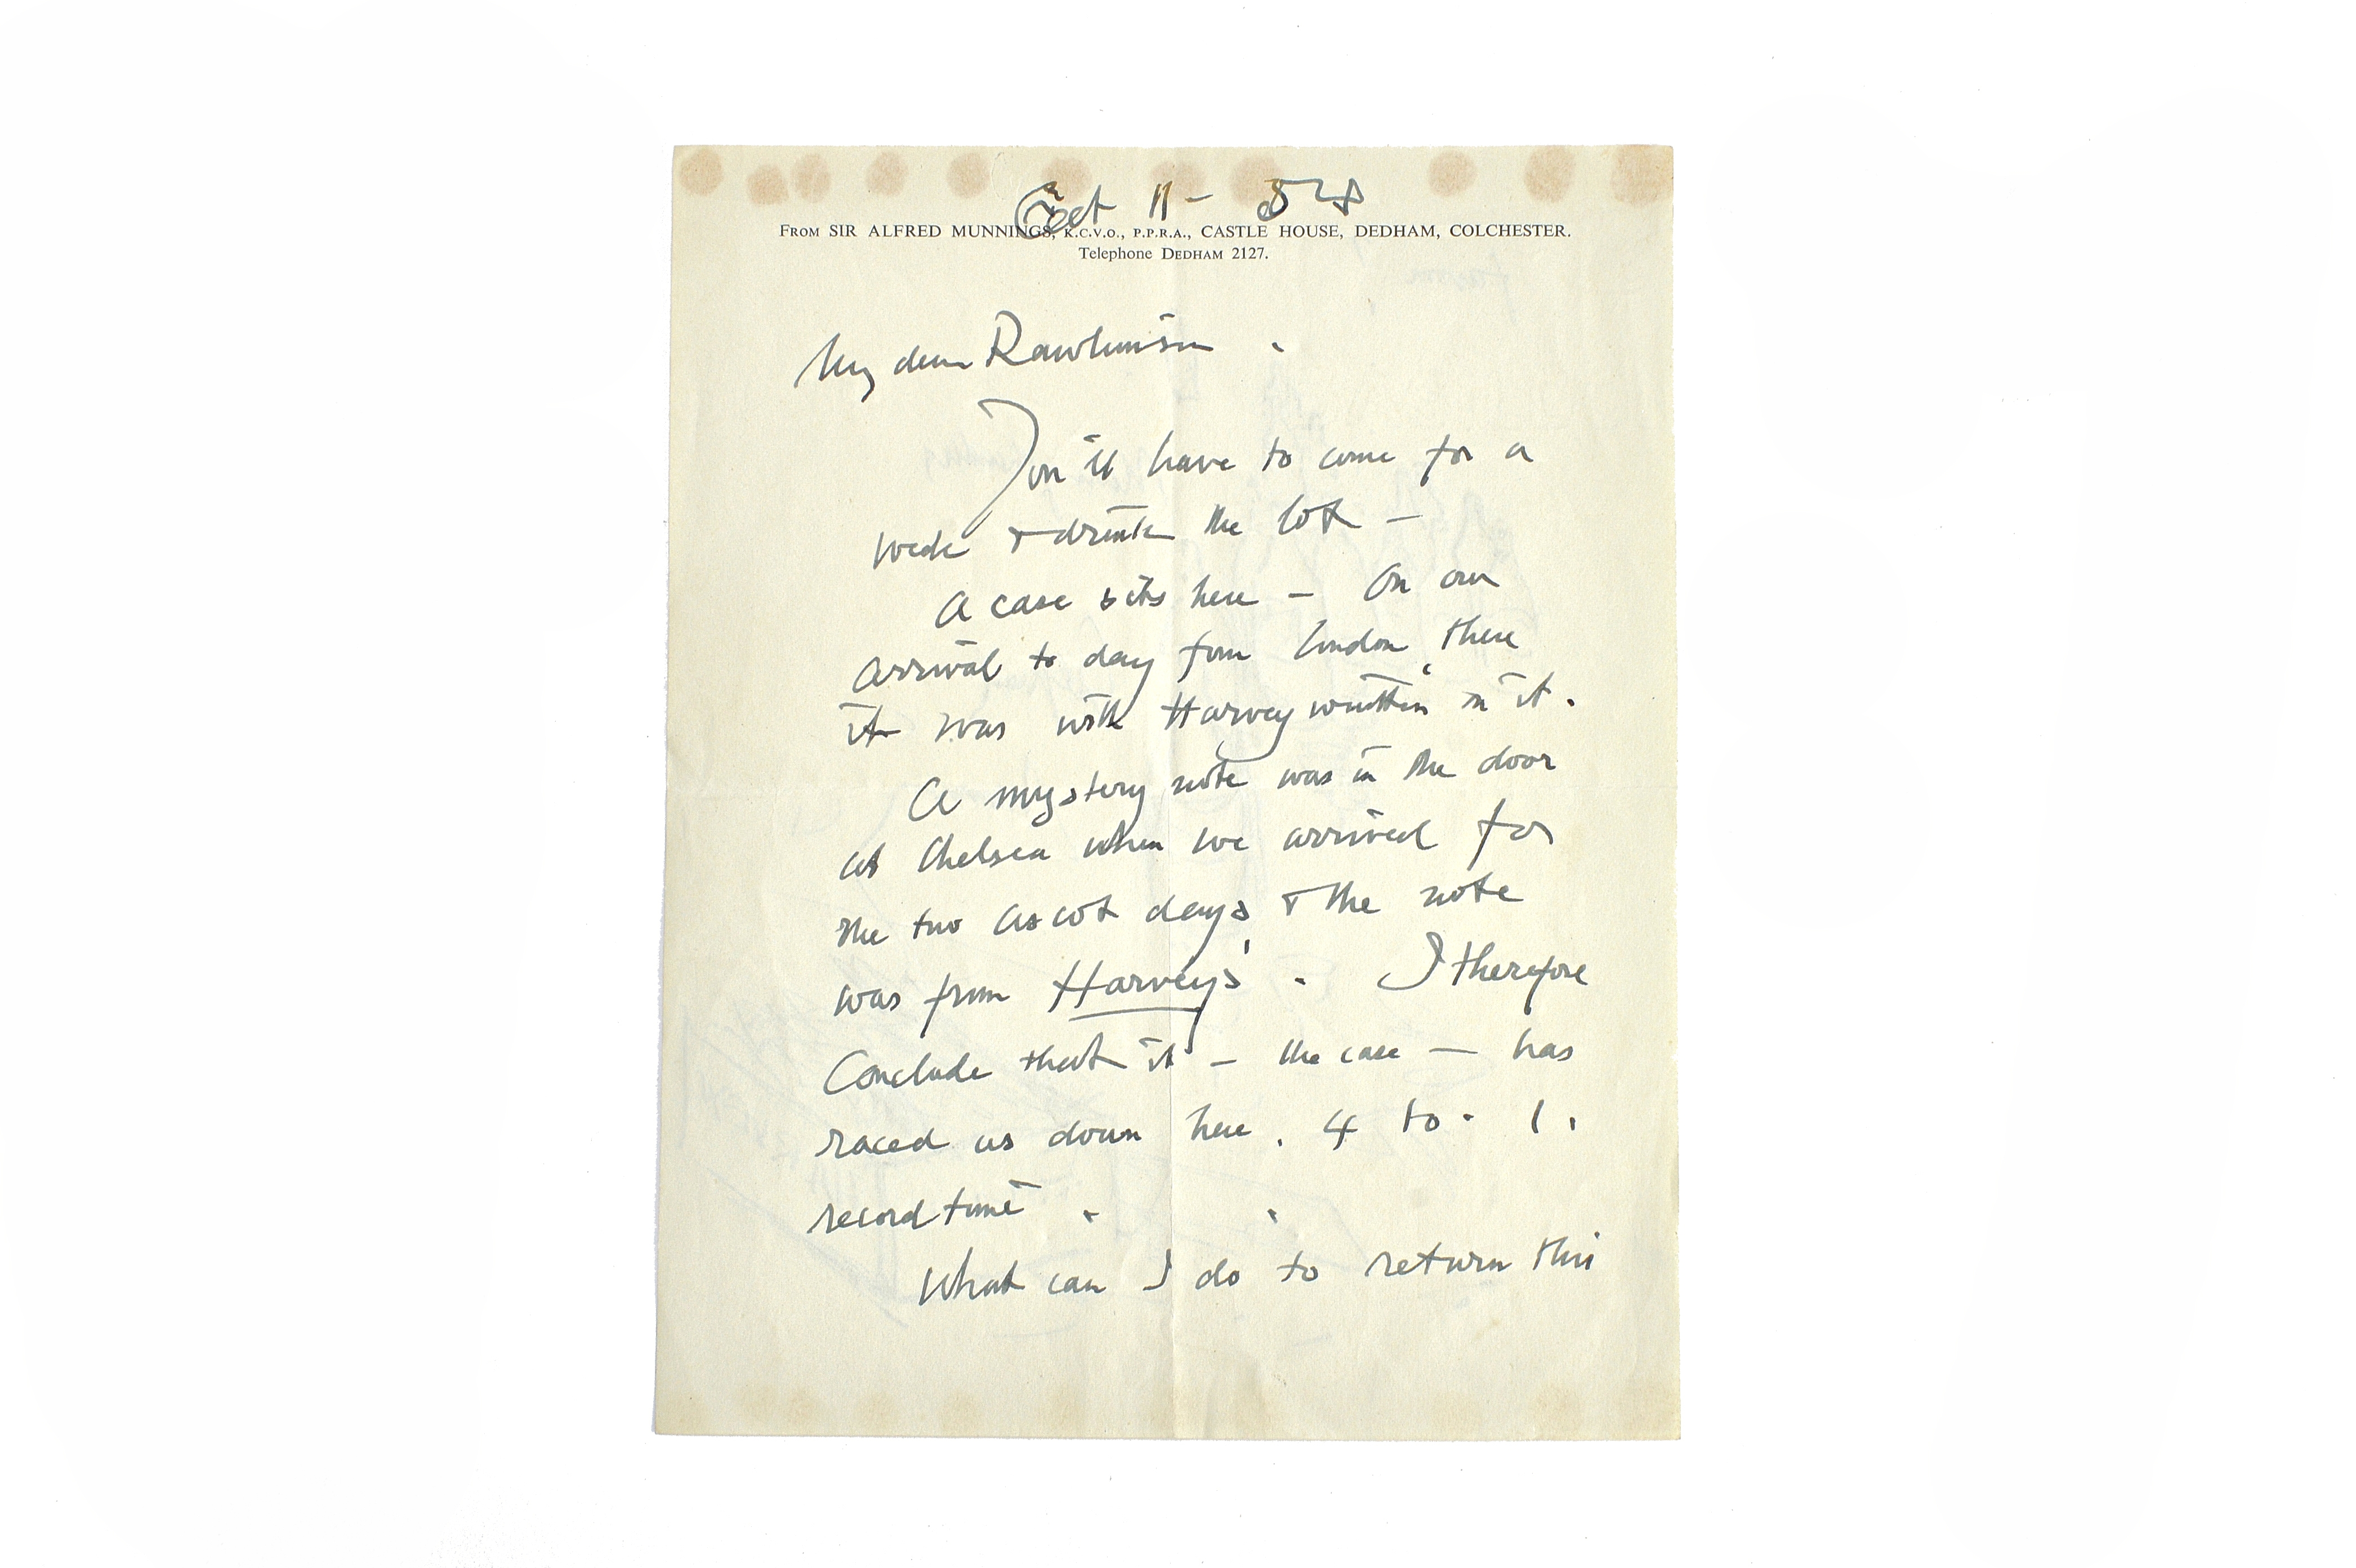 Oct 11 - 54
From SIR ALFRED MUNNINGS, K.C.V.O., P.P.R.A., CASTLE HOUSE, DEDHAM, COLCHESTER.
Telephone DEDHAM 2127.
My dear Rawlinson.
You'll have to come for a
week & drink the lot —
A case sits here — On our
arrival to day from London, there
it was with Harvey written on it.
A mystery note was in the door
at Chelsea when we arrived for
the two Ascot days & the note
was from Harvey's. I therefore
Conclude that it — the case — has
raced us down here. 4 to. 1.
record time.
What can I do to return this